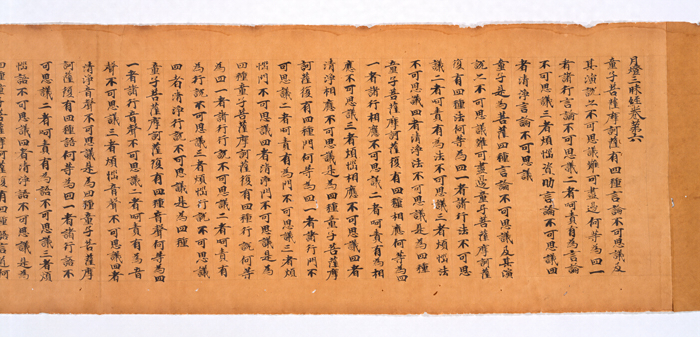 月燈三昧經卷第六
童子菩薩摩訶薩有四種言論不可思議及
其演說亦不可思議難可盡邊何等為四一
者諸行言論不可思議二者呵責有為言論
不可思議三者煩惱資助言論不可思議四
者清淨言論不可思議
童子是為菩薩四種言論不可思議及其演
說亦不可思議難可盡邊童子菩薩摩訶薩
復有四種法何等為四一者諸行法不可思
議二者呵責有為法不可思議三者煩惱法
不可思議四者清淨法不可思議是為四種
童子菩薩摩訶薩復有四種相應何等為四
一者諸行相應不可思議二者呵責有為相
應不可思議三者煩惱相應不可思議四者
清淨相應不可思議是為四種童子菩薩摩
訶薩復有四種門何等為四一者諸行門不
可思議二者呵責有為門不可思議三者煩
惱門不可思議四者清淨門不可思議是為
四種童子菩薩摩訶薩復有四種行說何等
為四一者諸行行說不可思議二者呵責有
為行說不可思議三者煩惱行說不可思議
四者清淨行說不可思議是為四種
童子菩薩摩訶薩復有四種音聲何等為四
一者諸行音聲不可思議二者呵責有為音
聲不可思議三者煩惱音聲不可思議四者
清淨音聲不可思議是為四種童子菩薩摩
訶薩復有四種語何等為四一者諸行語不
可思議二者呵責有為語不可思議三者煩
惱語不可思議四者清淨語不可思議是為
四種童子菩薩摩訶薩復有四種語言道何